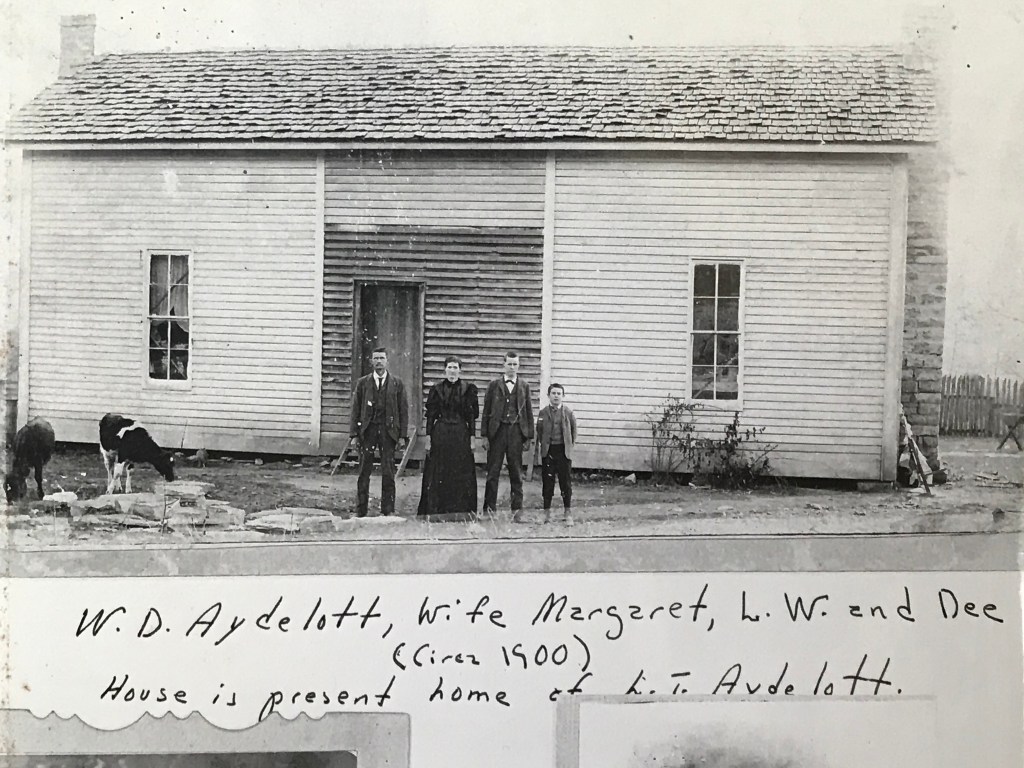 W. D. Aydelott, Wife Margaret, L. W. and Dee
(Circa 1900)
House is present home of L. T. Aydelott.